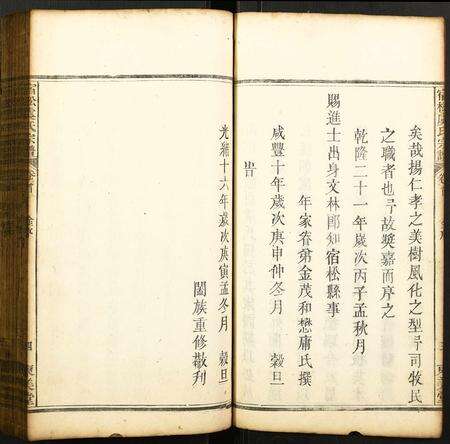 矣哉揚仁孝之美樹風化之型予司牧民
之職者也予故奬嘉而序之
乾隆二十一年歲次丙子孟秋月
賜進士出身文林郎知宿松縣事
年家眷弟金茂和懋庸氏撰
咸豐十年歲次庚申仲冬月 穀旦
光緒十六年歲次庚寅孟冬月 穀旦
闔族重修敬刋
宿松
氏宗譜
卷首
四
東美堂